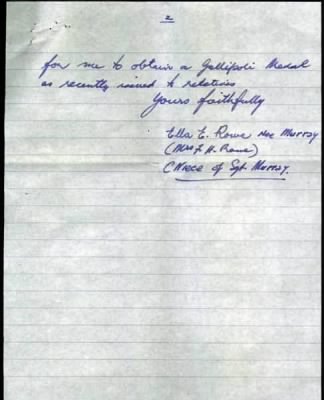 2
for me to obtain a Gallipoli Medal
as recently issued to relatives
Yours faithfully
Ella E. Rowe nee Murray
(Mrs F. H. Rowe)
(Niece of Sgt. Murray.